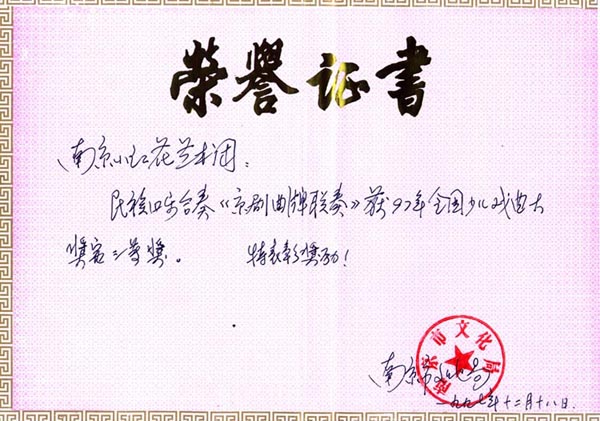 榮譽证書
南京小红花艺术团：
民族吹打合奏《京剧曲牌联奏》获97年全国少儿戏曲大
奖赛二等奖。 特表彰奖励！
南京市文化局
南京市文化局
一九九七年十二月十八日